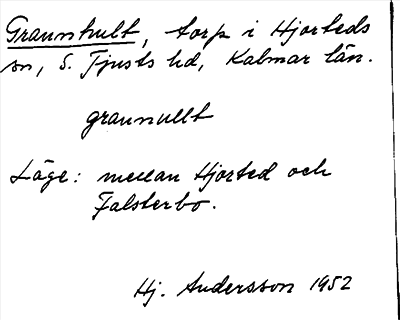 Grannhult, torp i Hjorteds
sn, S. Tjusts hd, Kalmar län.
grannullt
Läge: mellan Hjorted och
Falsterbo.
Hj. Andersson 1952